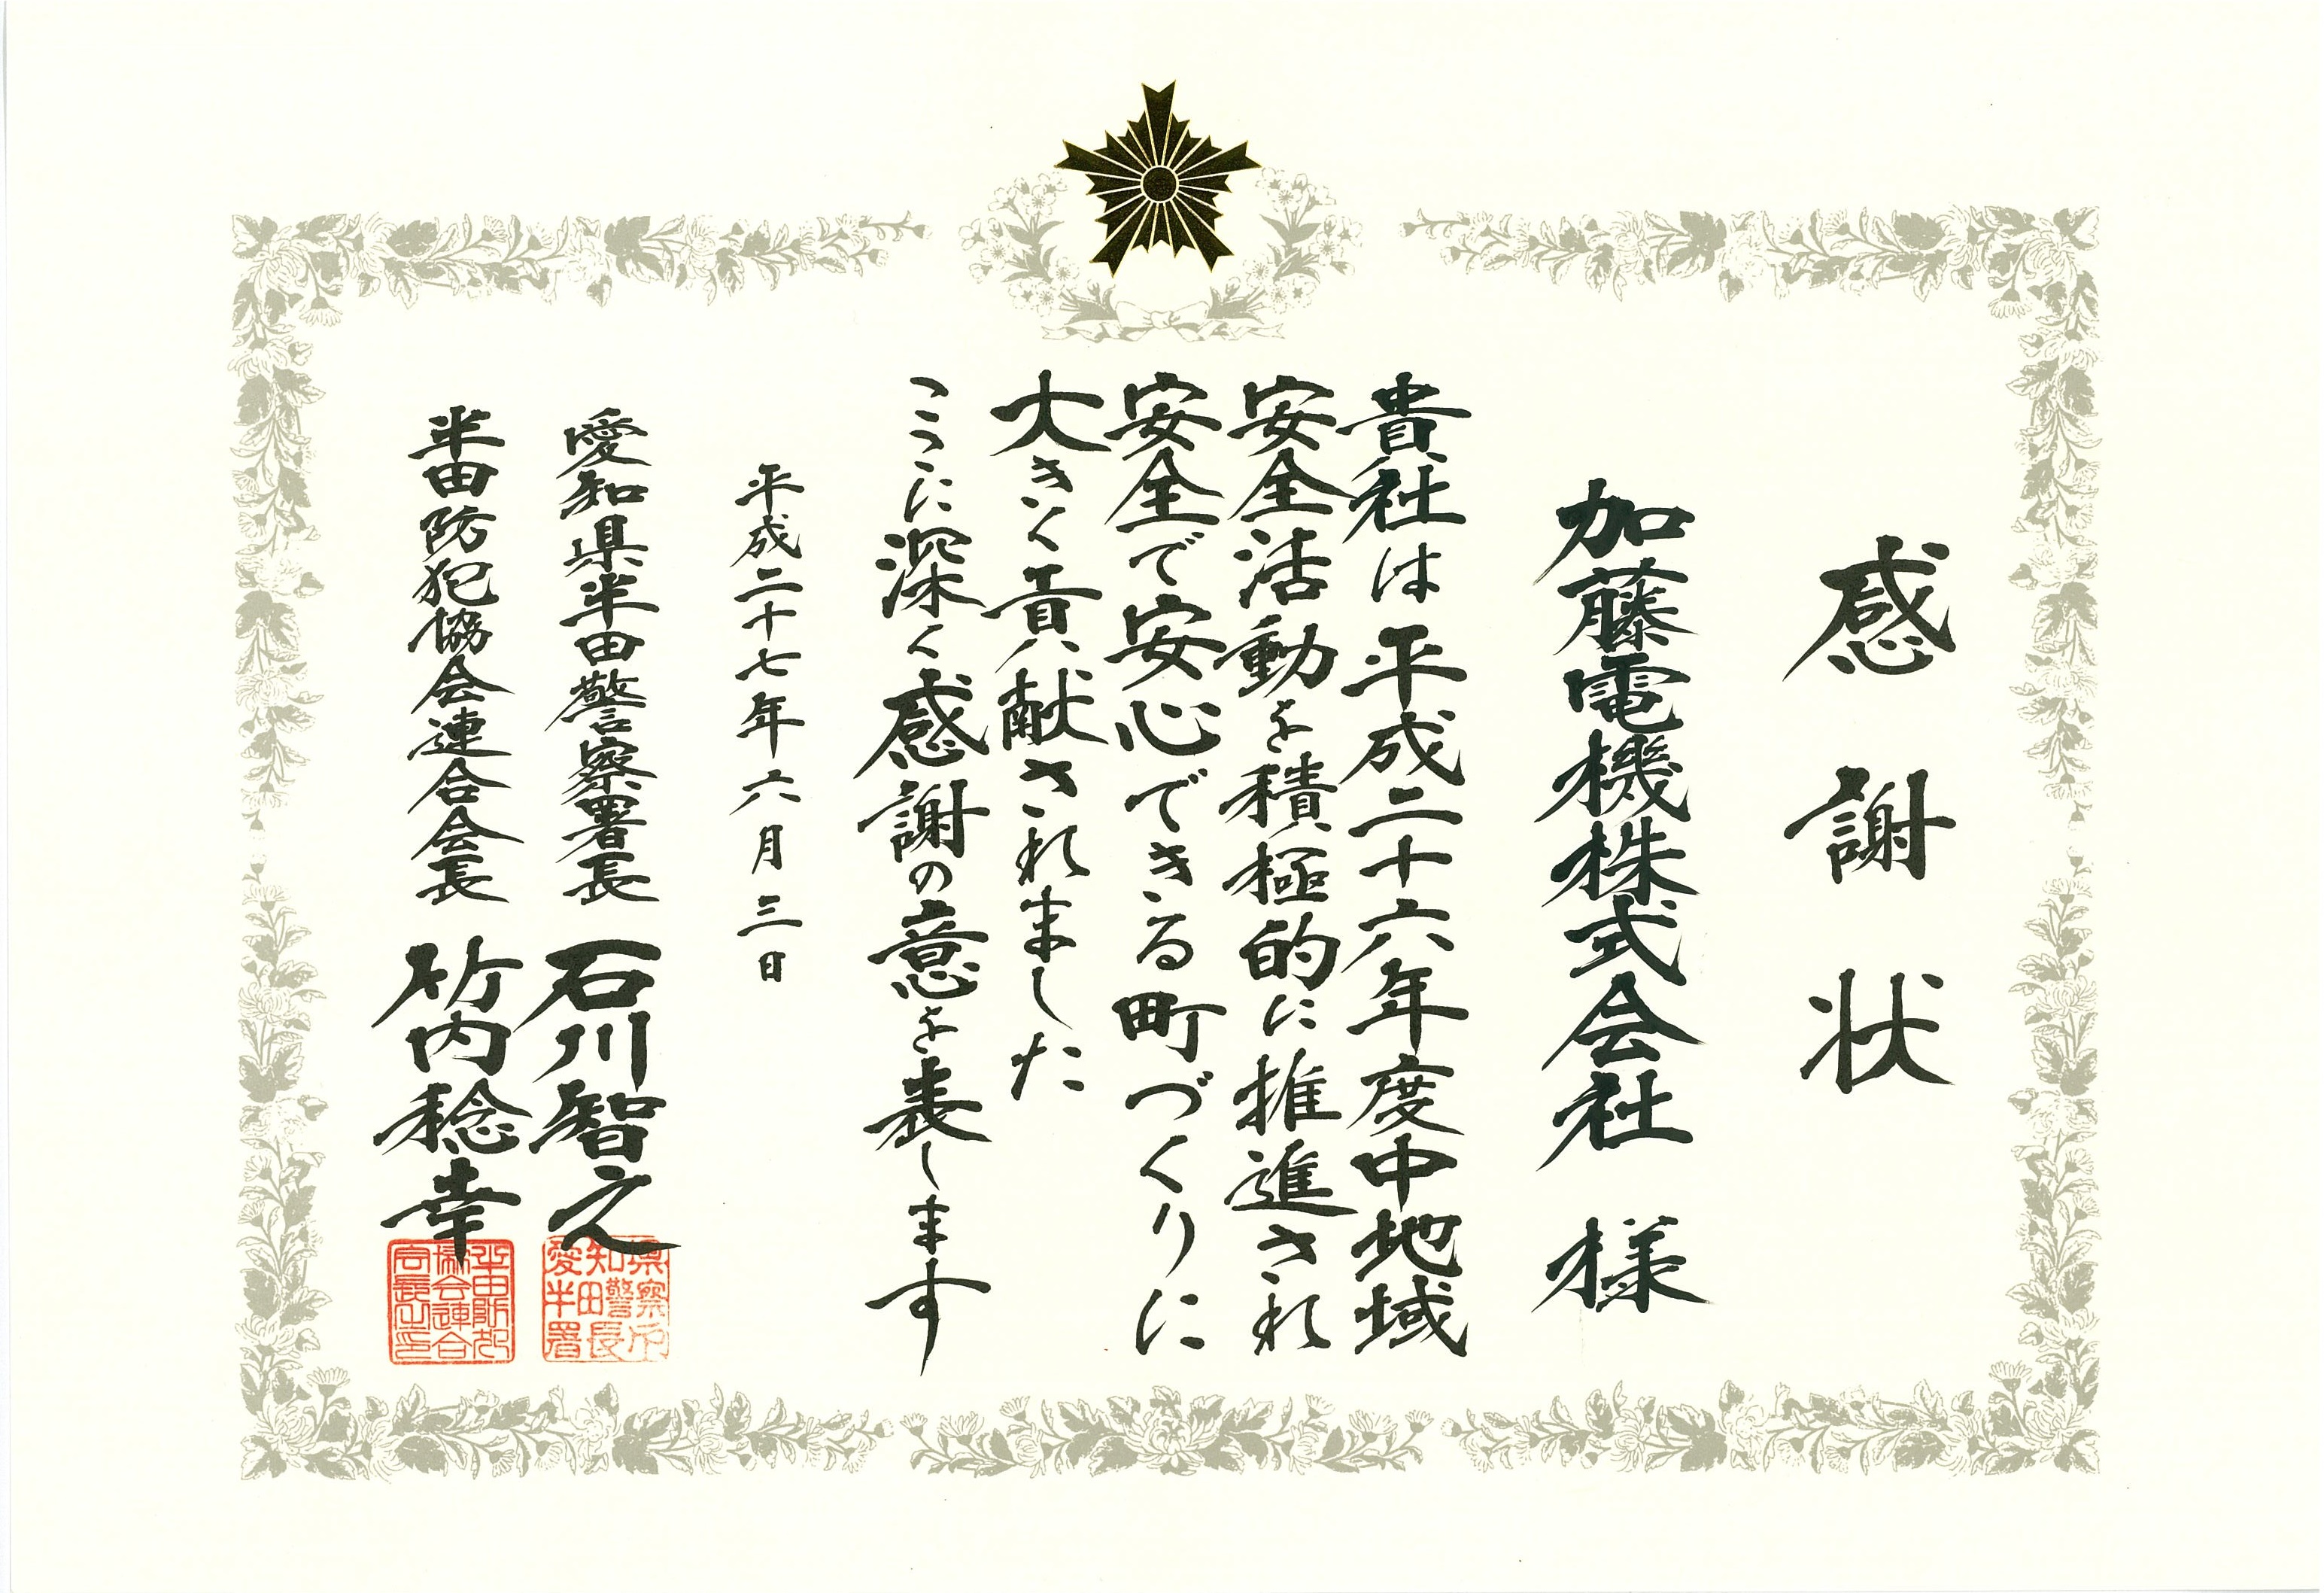 感謝状
加藤電機株式会社 様
貴社は平成二十六年度中地域
安全活動を積極的に推進され
安全で安心できる町づくりに
大きく貢献されました
ここに深く感謝の意を表します
平成二十七年六月三日
愛知県半田警察署長 石川智之
半田防犯協会連合会長 竹内稔幸